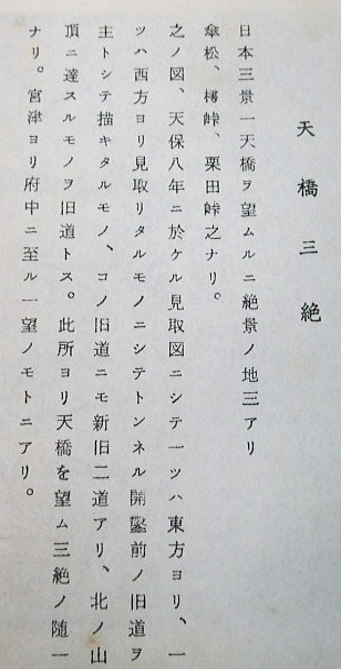 天橋三絶
日本三景一天橋ヲ望ムルニ絶景ノ地三アリ
傘松、樗峠、栗田峠之ナリ。
之ノ図、天保八年ニ於ケル見取図ニシテ一ツハ東方ヨリ、一
ツハ西方ヨリ見取リタルモノニシテトンネル開鑿前ノ旧道ヲ
主トシテ描キタルモノ、コノ旧道ニモ新旧二道アリ、北ノ山
頂ニ達スルモノヲ旧道トス。此所ヨリ天橋を望ム三絶ノ随一
ナリ。宮津ヨリ府中ニ至ル一望ノモトニアリ。